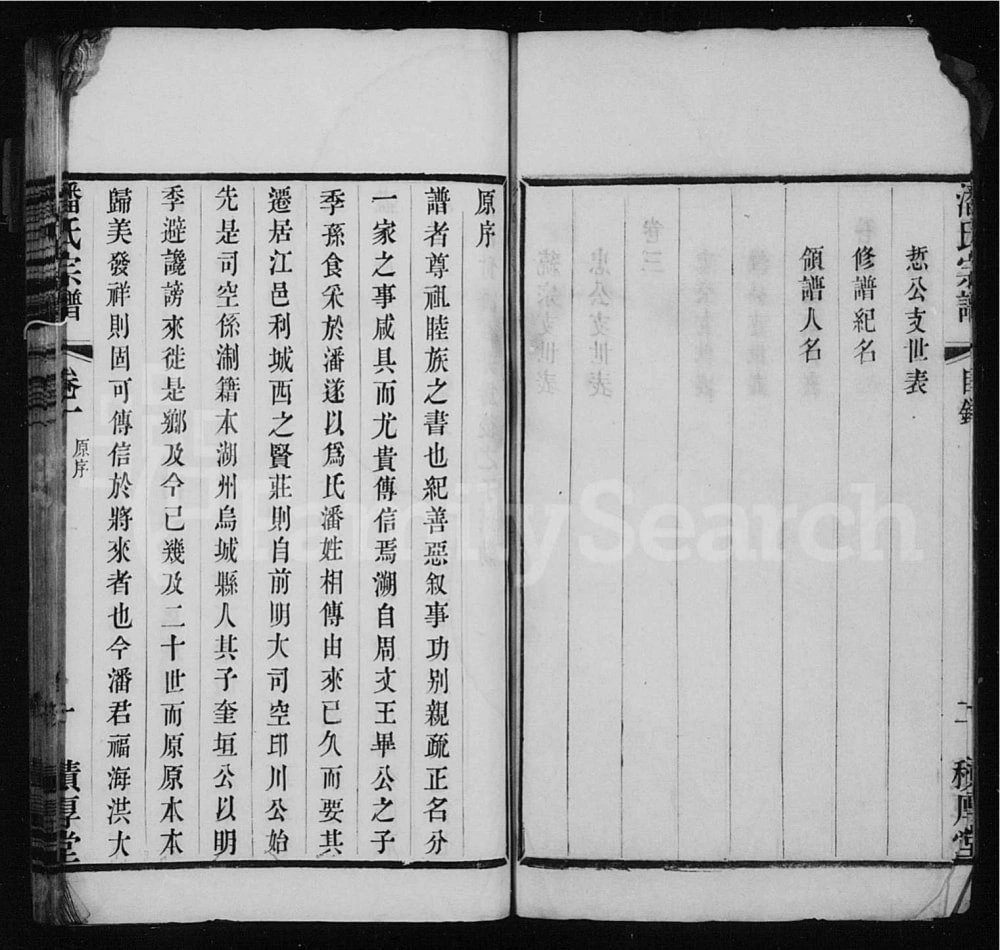 潘氏宗譜
目錄
二
積厚堂
悊公支世表
修譜紀名
領譜人名
原序
譜者尊祖睦族之書也紀善惡叙事功别親疏正名分
一家之事咸具而尤貴傳信焉溯自周文王畢公之子
季孫食采於潘遂以爲氏潘姓相傳由來已久而要其
遷居江邑利城西之賢莊則自前明大司空印川公始
先是司空係浙籍本湖州烏城縣人其子奎垣公以明
季避讒謗來徙是鄉及今已幾及二十世而原原本本
歸美發祥則固可傳信於將來者也今潘君福海洪大
潘氏宗譜
卷一
原序
一
積厚堂
FamilySearch